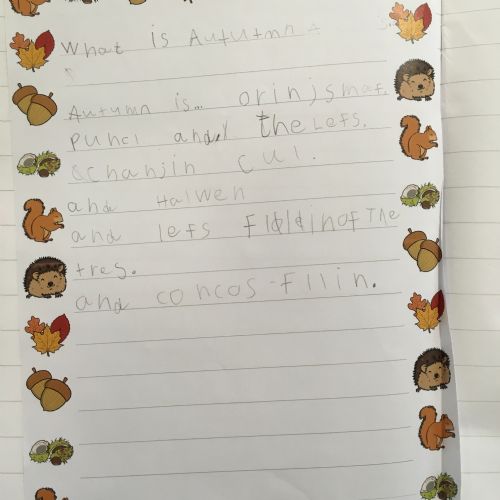 What is Aututmn
Autumn is... orinjsmat.
Puncl and the Lefs.
chanjin cul.
and Halwen
and lefs flddinof The
tres.
and concos-fllin.